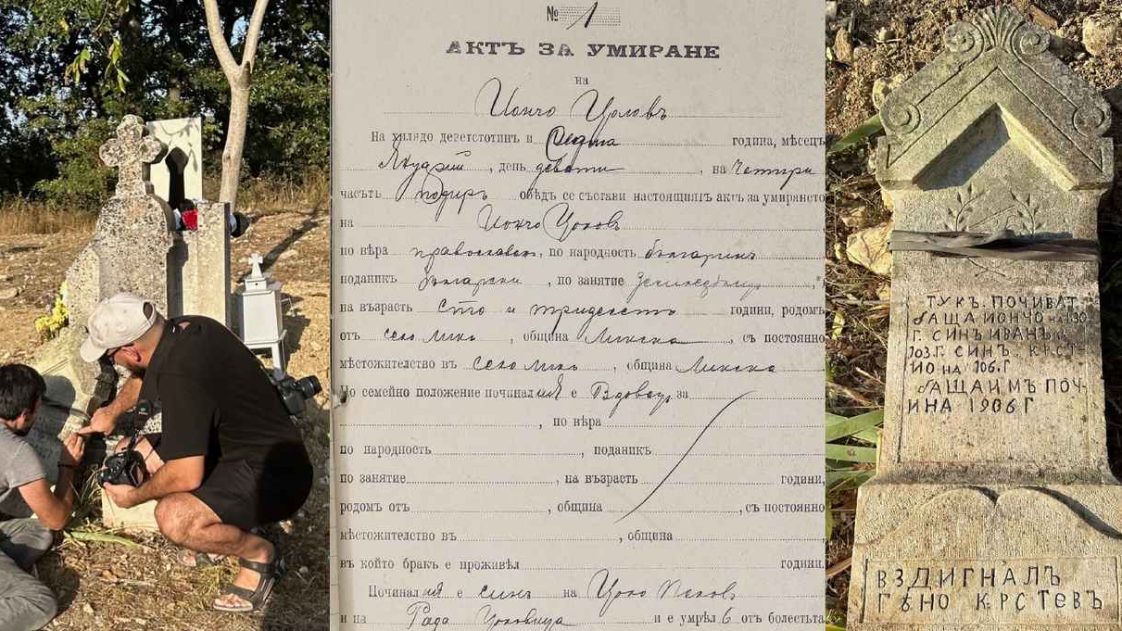 № 1
АКТЪ ЗА УМИРАНЕ
на
Йончо Цоловъ
На хилядо деветстотинъ и седма година, мѣсецъ
Януарий, день девети, на Четири
часътъ подиръ обѣдъ се състави настоящиятъ актъ за умирането
на Йончо Цоловъ
по вѣра православен, по народность българинъ
поданик български, по занятие
на възрасть сто и тридесеть години, родомъ
отъ село, община, съ постоянно
мѣстожителство въ село, община
По семейно положение починалия е Вдовец за
, по вѣра
по народность, поданикъ
по занятие, на възрасть години,
родомъ отъ, община, съ постоянно
мѣстожителство въ, община
въ който бракъ е проживѣл години.
Починалия е синъ на Цоло
и на Рада и е умрѣл ѣ отъ болестьта
ТУК. ПОЧИВАТ.
БАЩА ЙОНЧО НА 130
Г. СИНЪ ИВАНЪ НА
103 Г. СИНЪ К.РСТ-
Ю НА 106. Г
БАЩА ИМЪ ПОЧ-
ИНА 1906 Г
ВЗДИГНАЛЪ
ГѪНО К.РСТЕВЪ